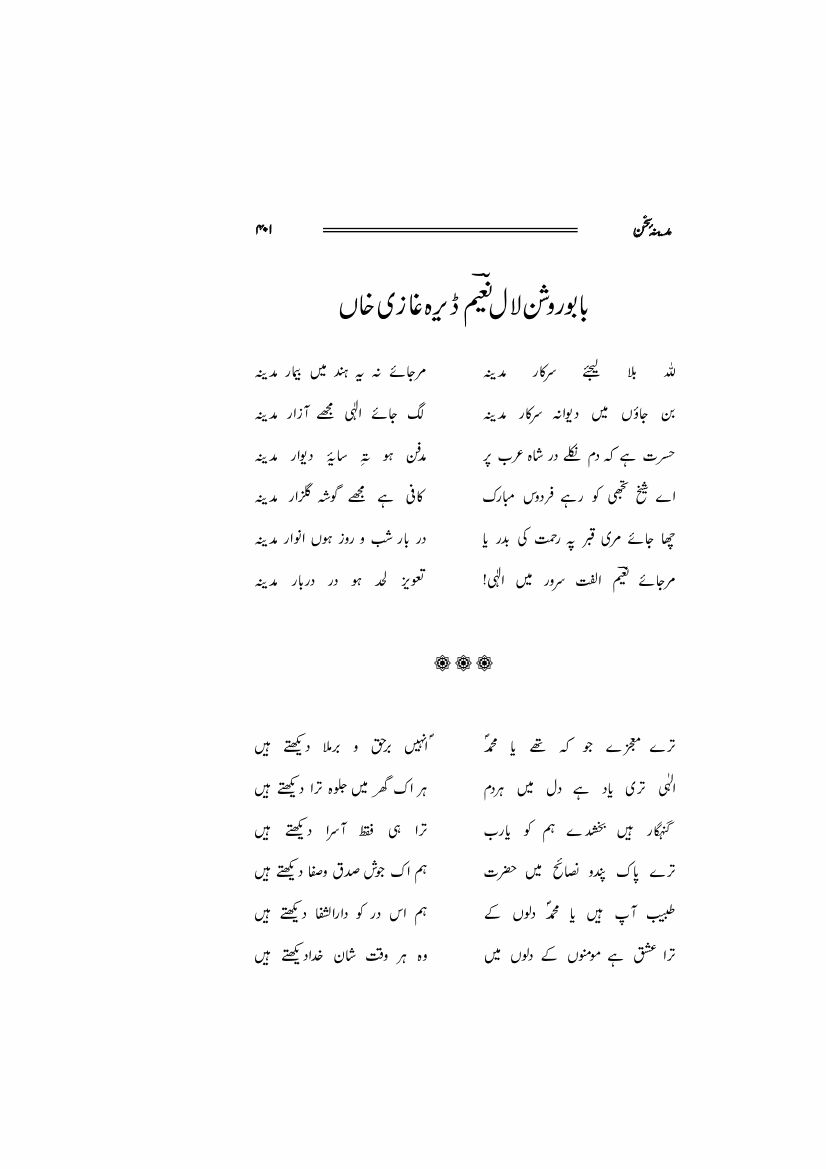 مدینہ سخن ۴۰۱
بابو روشن لال نعیمؔ ڈیرہ غازی خاں
للہ بلا لیجئے سرکار مدینہ مرجائے نہ یہ ہند میں بیمار مدینہ
بن جاؤں میں دیوانہ سرکار مدینہ لگ جائے الٰہی مجھے آزار مدینہ
حسرت ہے کہ دم نکلے در شاہ عرب پر مدفن ہو تہِ سایۂ دیوار مدینہ
اے شیخ تجھی کو رہے فردوس مبارک کافی ہے مجھے گوشہ گلزار مدینہ
چھا جائے مری قبر پہ رحمت کی بدر یا در بار شب و روز ہوں انوار مدینہ
مرجائے نعیمؔ الفت سرور میں الٰہی! تعویز لحد ہو در دربار مدینہ
ترے معجزے جو کہ تھے یا محمدؐ اُنہیں برحق و برملا دیکھتے ہیں
الٰہی تری یاد ہے دل میں ہردم ہر اک گھر میں جلوہ ترا دیکھتے ہیں
گنہگار ہیں بخشدے ہم کو یارب ترا ہی فقط آسرا دیکھتے ہیں
ترے پاک پندو نصائح میں حضرت ہم اک جوش صدق وصفا دیکھتے ہیں
طبیب آپ ہیں یا محمدؐ دلوں کے ہم اس در کو دارالشفا دیکھتے ہیں
ترا عشق ہے مومنوں کے دلوں میں وہ ہر وقت شان خدادیکھتے ہیں